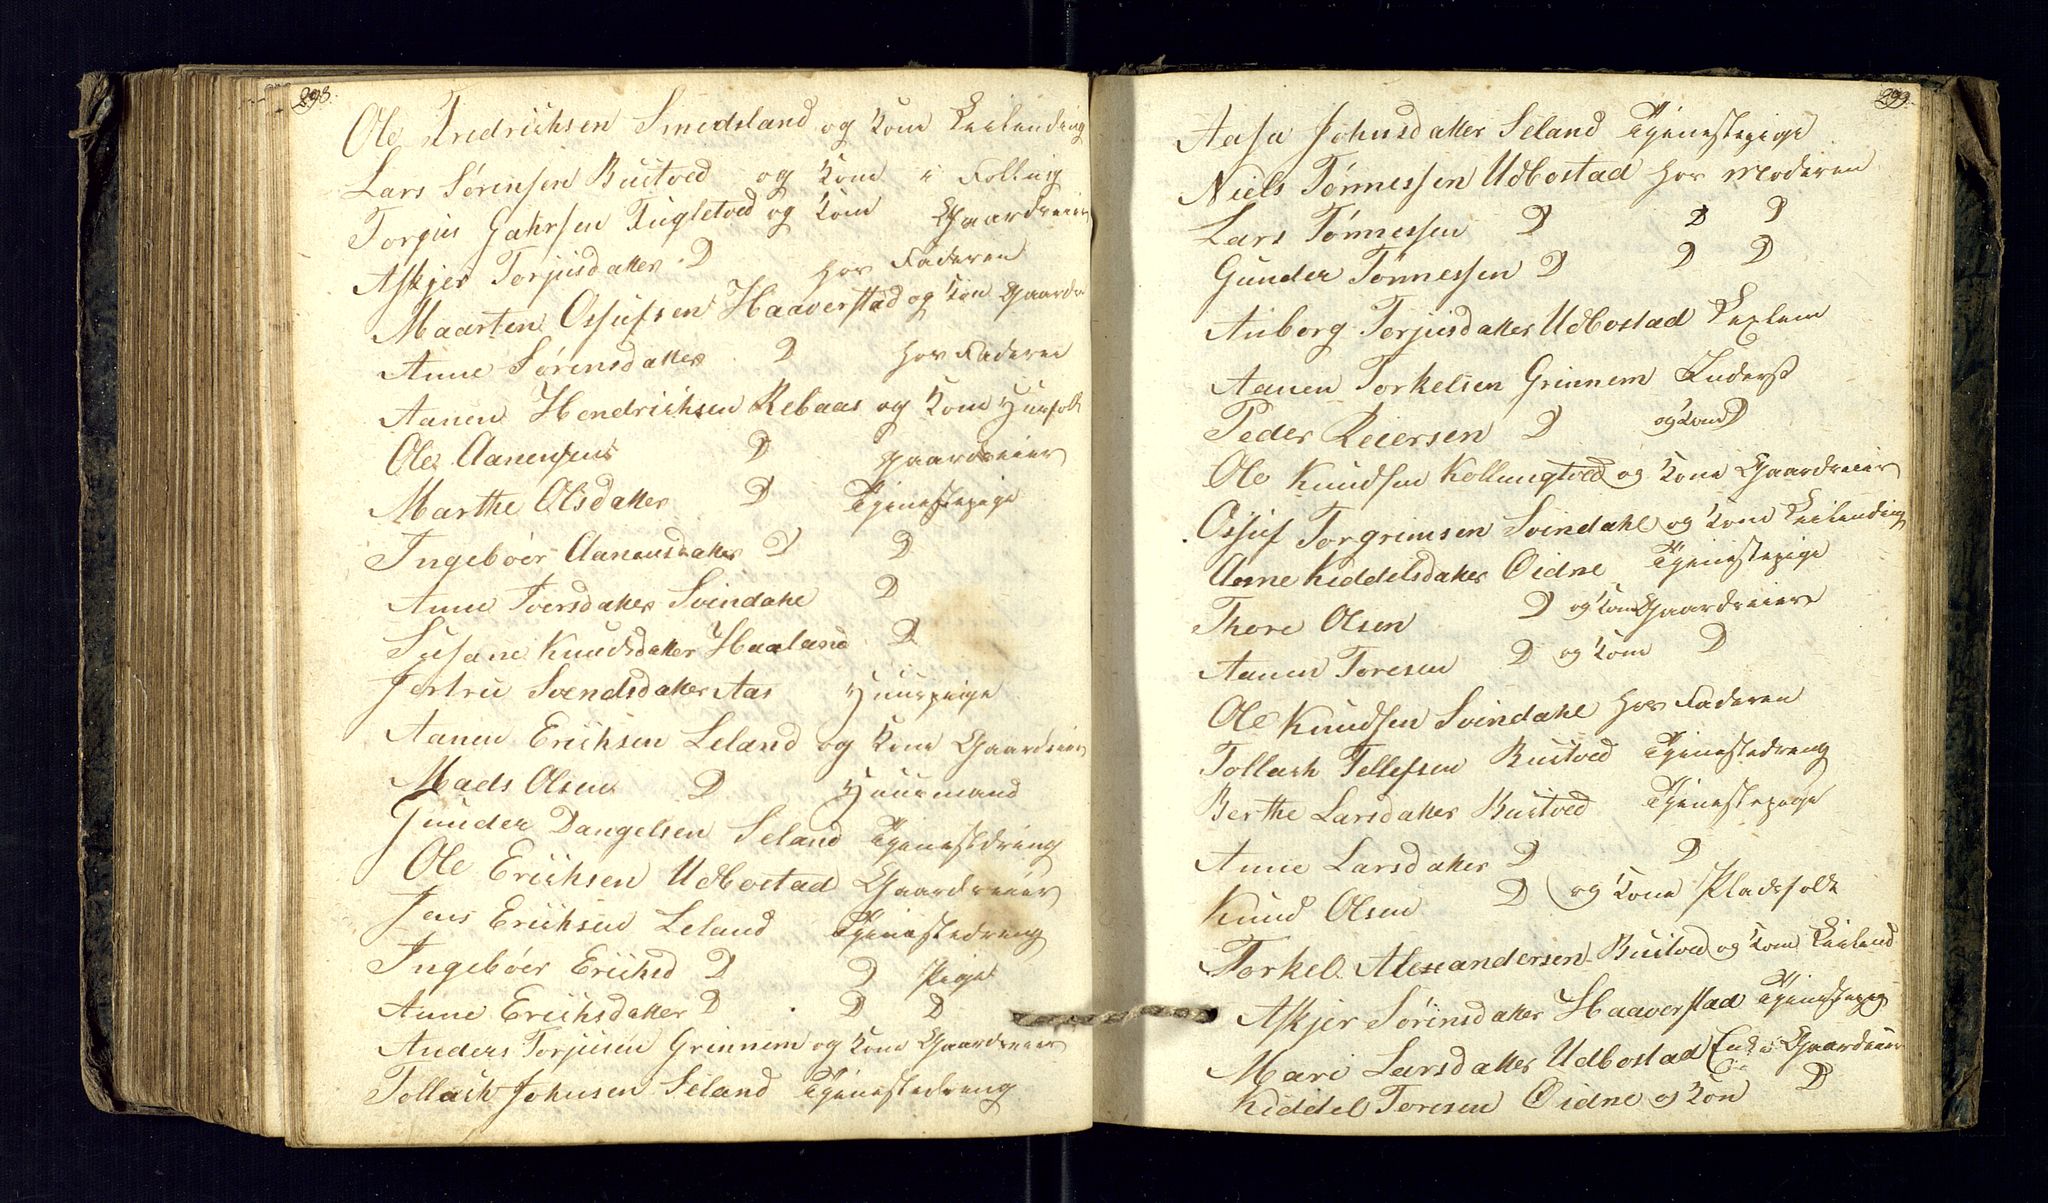 298.
Ole Fredrichsen Smedsland og Kone Leilending
Lars Sørensen Bustved og Kone i Følling
Torgius Gahrsen Fugletved og Kone Gaardreier
Askjer Torjusdatter D hos Faderen
Maarten Ossufsen Haaverstad og Kone Gaardr
Anne Sørensdatter D hos Faderen
Aanen Hendrichsen Rebaas og Kone Huusfolk
Ole Aanensens D Gaardreier
Marthe Olsdatter D Tjenestepige
Ingebøer Aanensdatter D D
Anne Toersdatter Svindahl D
Susane Knudsdatter Haaland D
Jertru Svendsdatter Aas Huuspige
Aanen Erichsen Leland og Kone Gaardreier
Mads Olsen D Huusmand
Gunder Dangelsen Seland Tjenestdreng
Ole Erichsen Udbostad Gaardreier
Jens Erichsen Leland Tjenestedreng
Ingebøer Erichsd D D Pige
Anne Erichsdatter D D D
Anders Torjusen Grinnem og Kone Gaardreier
Tollach Johnsen Seland Tjenestedreng
299.
Aasa Johnsdatter Seland Tjenestepige
Niels Tønnessen Udbostad hos Moderen
Lars Tønnessen D D D
Gunder Tønnessen D D D
Anborg Torjusdatter Udbostad Lexlem
Aanen Torkelsen Grinnem Inderst
Peder Reiersen D og Kone D
Ole Knudsen Kollungtved og Kone Gaardreier
Ossuf Torgrimsen Svindahl og Kone Leilending
Anne Kiddelsdatter Oidne Tjenestepige
Thore Olsen D og Kone Gaardreiere
Aanen Toresen D og Kone D
Ole Knudsen Svindahl hos Faderen
Tollach Tellefsen Bustved Tjenestedreng
Berthe Larsdatter Bustved Tjenestepige
Anne Larsdatter D D
Knud Olsen D og Kone Pladsfolk
Torkel Alexandersen Bustved og Kone Leilend
Askjer Sørinsdatter Haaverstad Tjenestepig
Mari Larsdatter Udbostad Enke Gaardreier
Kiddel Toresen Oidne og Kon D